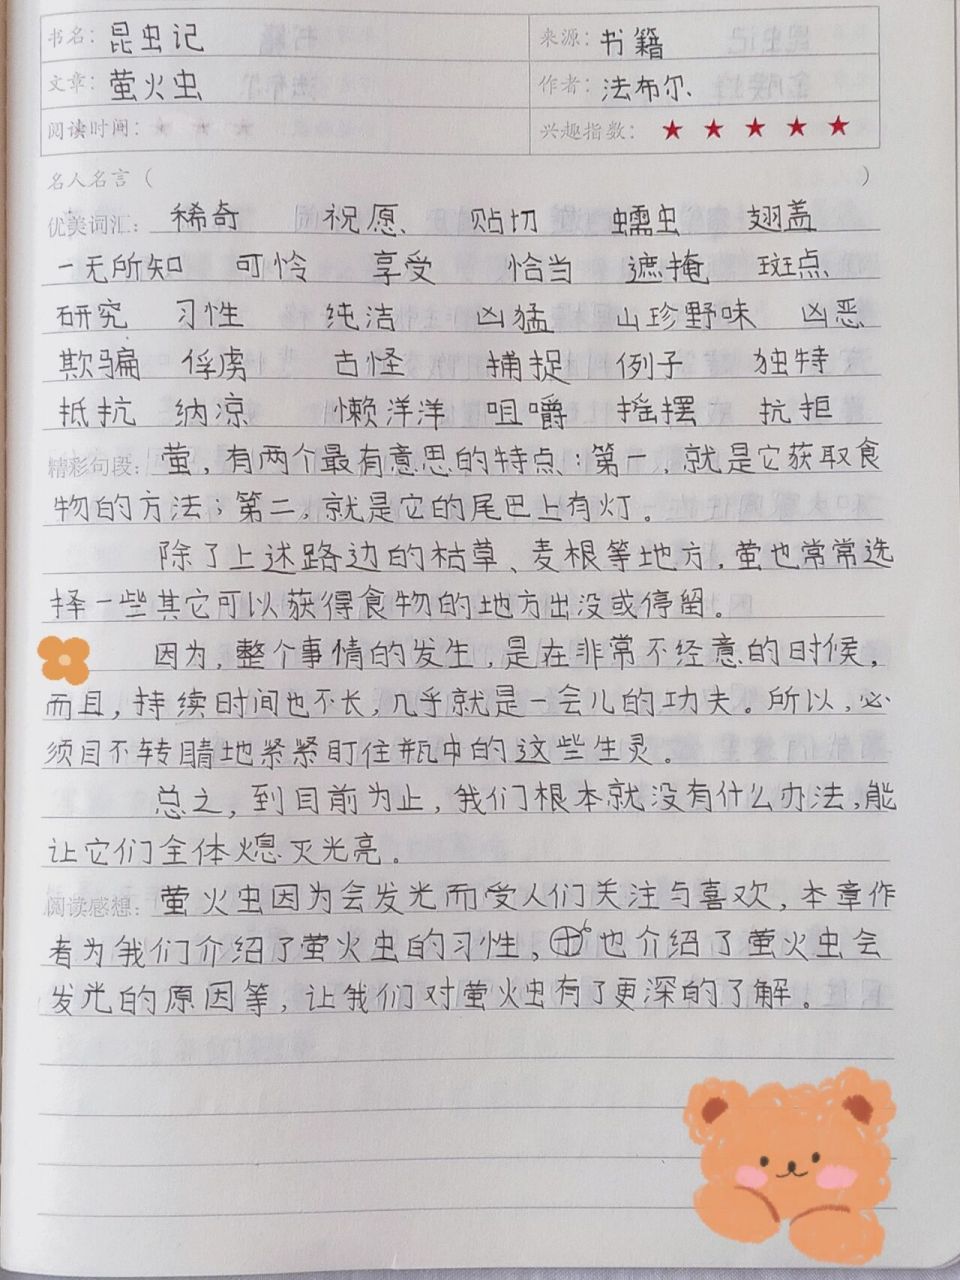 书名：昆虫记 来源：书籍
文章：萤火虫 作者：法布尔
阅读时间： 兴趣指数：★★★★★
名人名言（ ）
优美词汇： 稀奇 祝愿 贴切 蠕虫 翅盖
一无所知 可怜 享受 恰当 遮掩 斑点
研究 习性 纯洁 凶猛 山珍野味 凶恶
欺骗 俘虏 古怪 捕捉 例子 独特
抵抗 纳凉 懒洋洋 咀嚼 摇摆 抗拒
精彩句段：萤，有两个最有意思的特点：第一，就是它获取食
物的方法；第二，就是它的尾巴上有灯。
除了上述路边的枯草、麦根等地方，萤也常常选
择一些其它可以获得食物的地方出没或停留。
因为，整个事情的发生，是在非常不经意的时候，
而且，持续时间也不长，几乎就是一会儿的功夫。所以，必
须目不转睛地紧紧盯住瓶中的这些生灵。
总之，到目前为止，我们根本就没有什么办法，能
让它们全体熄灭光亮。
阅读感想：萤火虫因为会发光而受人们关注与喜欢，本章作
者为我们介绍了萤火虫的习性，也介绍了萤火虫会
发光的原因等，让我们对萤火虫有了更深的了解。